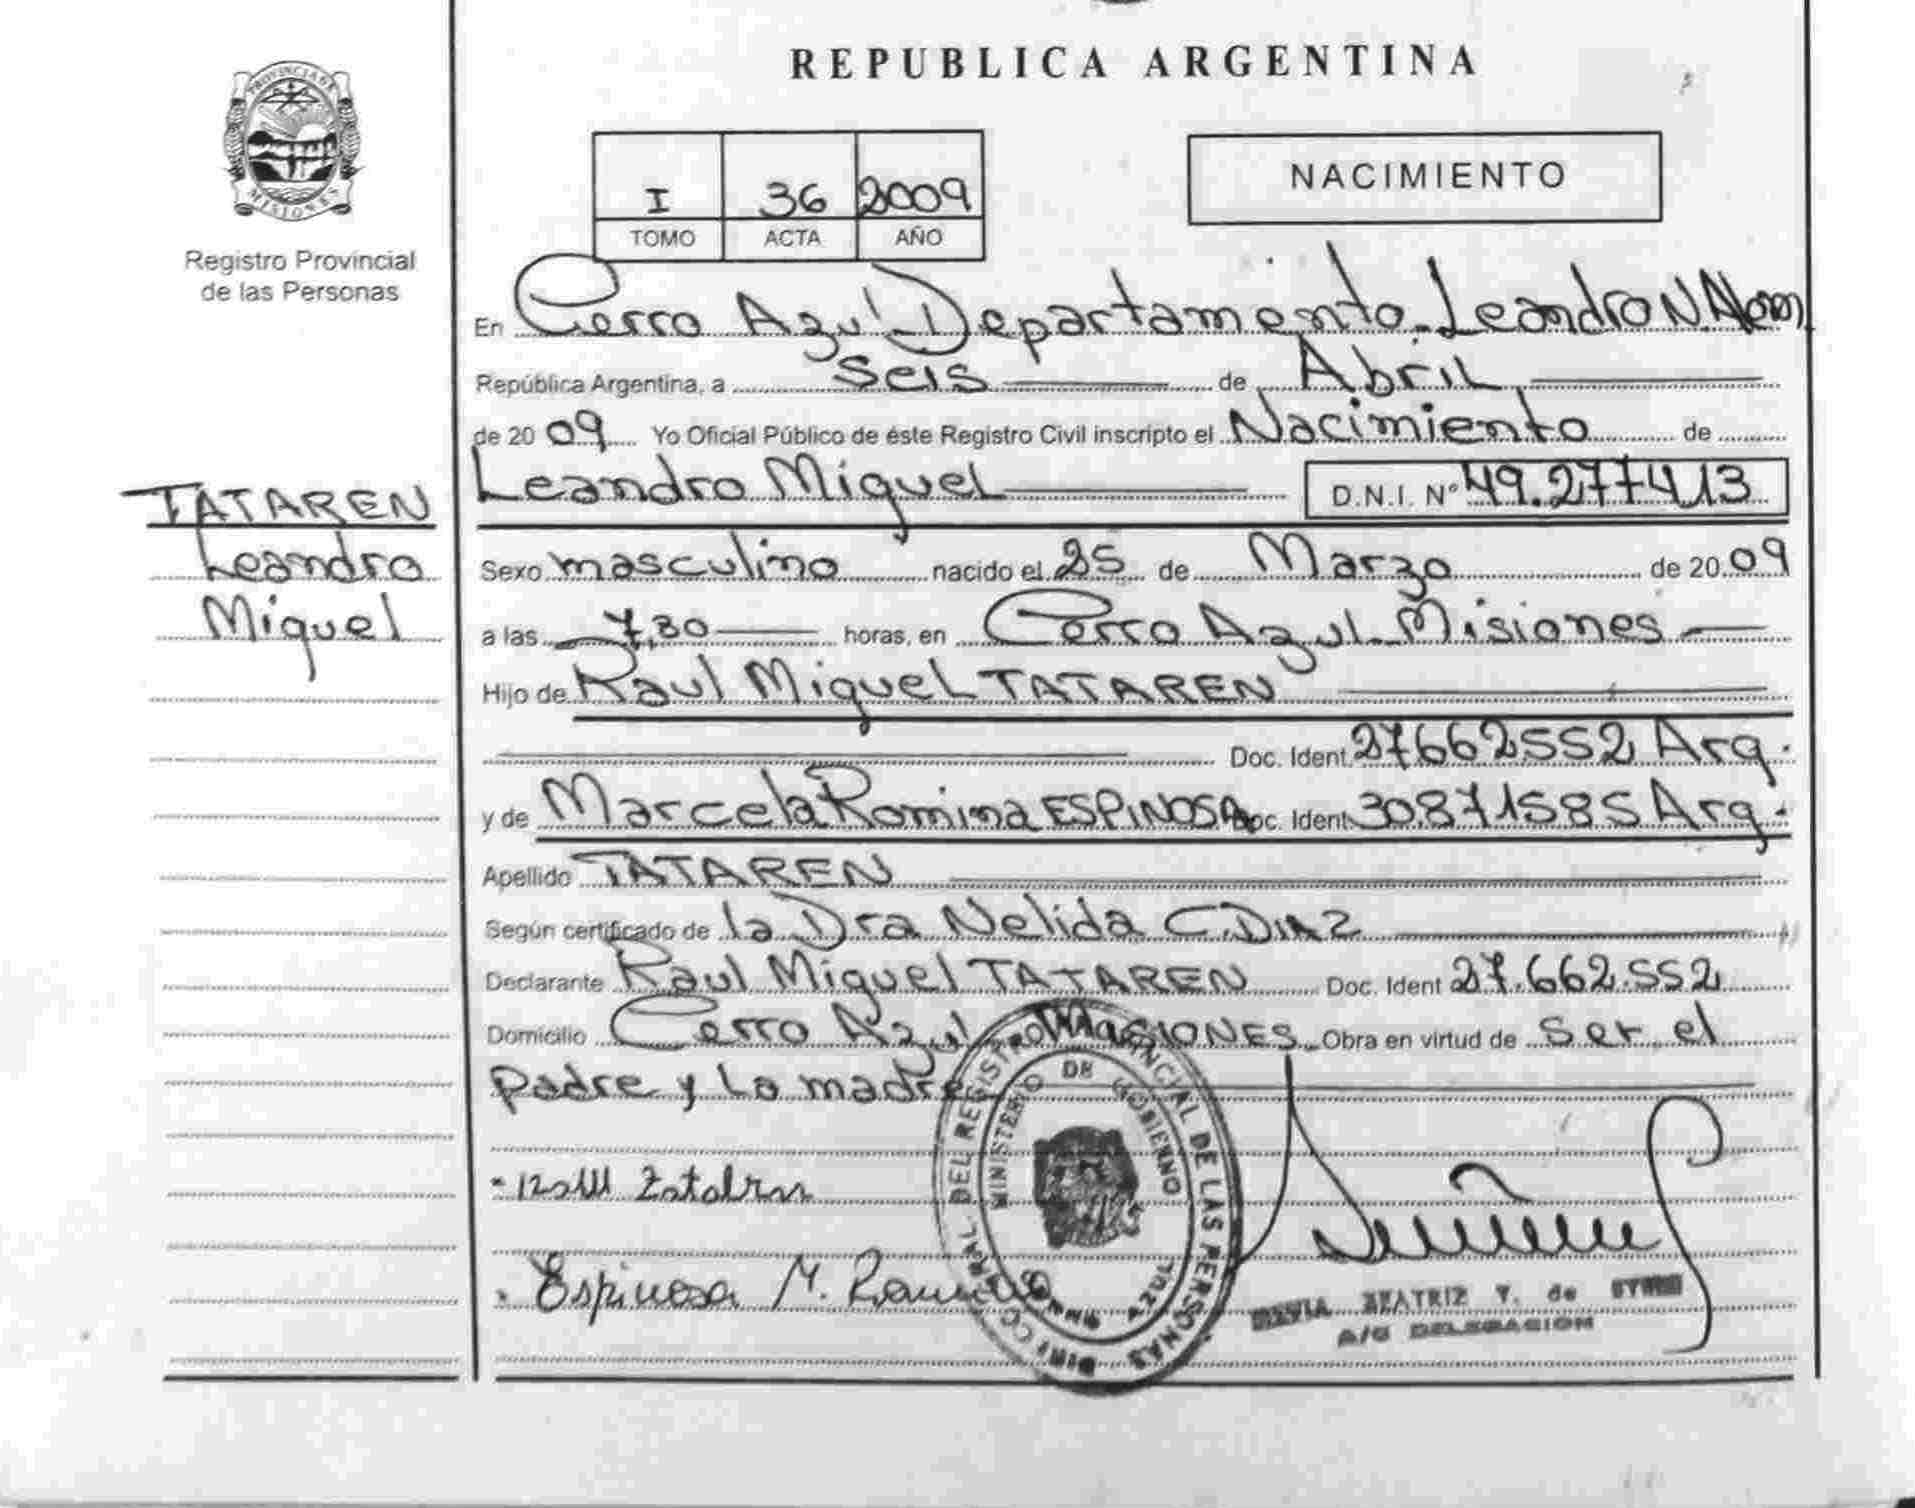 REPUBLICA ARGENTINA
PROVINCIA DE
MISIONES
Registro Provincial
de las Personas
I 36 2009
TOMO ACTA AÑO
NACIMIENTO
En Cerro Azul Departamento Leandro N. Alem
República Argentina, a seis de Abril
de 2009 Yo Oficial Público de éste Registro Civil inscripto el Nacimiento de
Leandro Miguel D.N.I. Nº 49.277413
TATAREN
Leandro
Miguel
Sexo masculino nacido el 25 de Marzo de 2009
a las 7,30 horas, en Cerro Azul Misiones
Hijo de Raul Miguel TATAREN
Doc. Ident. 27662552 Arg.
y de Marcela Romina ESPINOSA Doc. Ident. 30.871585 Arg.
Apellido TATAREN
Según certificado de la Dra Nelida C. DIAZ
Declarante Raul Miguel TATAREN Doc. Ident 27.662.552
Domicilio Cerro Azul MISIONES Obra en virtud de ser el
padre y la madre
Espinosa M.
DEL REGISTRO PROVINCIAL DE LAS PERSONAS
MINISTERIO DE GOBIERNO
AZUL
BEATRIZ V. de
A/C DELEGACION